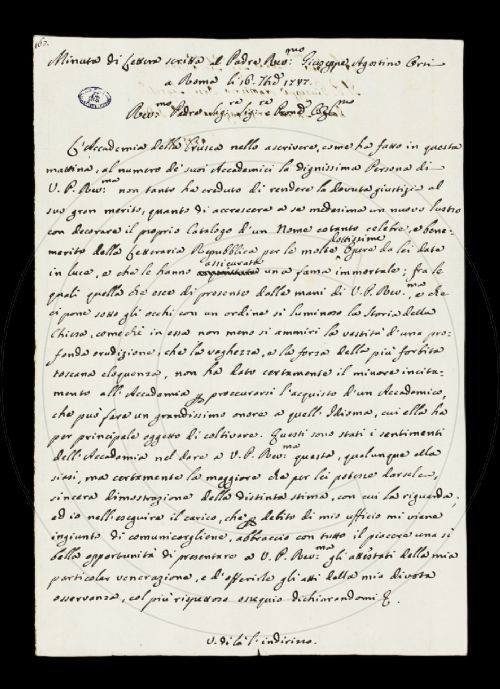 167.
Minuta di Lettera scritta al Padre Rev:mo Giuseppe Agostino Orsi
a Roma li 16. 1747.
Rev:mo Padre Sig.re Sig.re e Pron
L'Accademia della Crusca nello ascrivere, come ha fatto in questa
mattina, al numero de' suoi Accademici la dignissima Persona di
V. P. Rev:ma non tanto ha creduto di rendere la dovuta giustizia al
suo gran merito, quanto di accrescere a se medesima un nuovo lustro
con decorare il proprio Catalogo d'un Nome cotanto celebre, e bene-
merito della Letteraria Repubblica per le molte dottissime Opere da lei date
in luce, e che le hanno assicurato una fama immortale; fra le
quali quella che esce di presente dalle mani di V. P. Rev:ma, e che
ci pone sotto gli occhi con un ordine sì luminoso la Storia della
Chiesa, comechè in essa non meno si ammiri la vastità d'una pro-
fonda erudizione, che la vaghezza, e la forza della più forbita
toscana eloquenza, non ha dato certamente il minore incita-
mento all'Accademia p procurarsi l'acquisto d'un Accademico,
che può fare un grandissimo onore a quell'Idioma, cui ella ha
per principale oggetto di coltivare. Questi sono stati i sentimenti
dell'Accademia nel dare a V. P. Rev:ma questa, qualunque ella
siasi, ma certamente la maggiore che per lei potesse darsele,
sincera dimostrazione della distinta stima, con cui la riguarda;
ed io nell'eseguire il carico, che p debito di mio ufficio mi viene
ingiunto di comunicargliene, abbraccio con tutto il piacere una sì
bella opportunità di presentare a V. P. Rev:ma gli attestati della mia
particolar venerazione, e d'offerirle gli atti della mia divota
osservanza, col più rispettoso ossequio dichiarandomi &.
V. di là l'indirizzo.